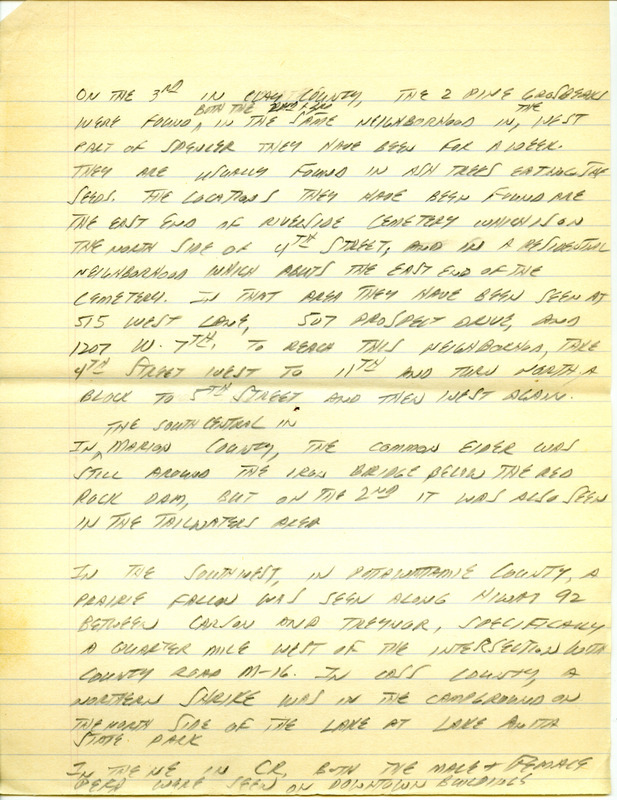 ON THE 3RD IN CLAY COUNTY, THE 2 PINE GROSBEAKS
BOTH THE 2ND + 3RD THE
WERE FOUND, IN THE SAME NEIGHBORHOOD IN, WEST
PART OF SPENCER THEY HAVE BEEN FOR A WEEK.
THEY ARE USUALLY FOUND IN ASH TREES EATING THE
SEEDS. THE LOCATIONS THEY HAVE BEEN FOUND ARE
THE EAST END OF RIVERSIDE CEMETERY WHICH IS ON
THE NORTH SIDE OF 4TH STREET, AND IN A RESIDENTIAL
NEIGHBORHOOD WHICH ABUTS THE EAST END OF THE
CEMETERY. IN THAT AREA THEY HAVE BEEN SEEN AT
515 WEST LANE, 507 PROSPECT DRIVE, AND
1207 W. 7TH. TO REACH THIS NEIGHBORHOOD, TAKE
4TH STREET WEST TO 11TH AND TURN NORTH A
BLOCK TO 5TH STREET AND THEN WEST AGAIN.
THE SOUTH CENTRAL IN
IN, MARION COUNTY, THE COMMON EIDER WAS
STILL AROUND THE IRON BRIDGE BELOW THE RED
ROCK DAM, BUT ON THE 2ND IT WAS ALSO SEEN
IN THE TAILWATERS AREA
IN THE SOUTHWEST, IN POTAWATTAMIE COUNTY, A
PRAIRIE FALCON WAS SEEN ALONG HIWAY 92
BETWEEN CARSON AND TREYNOR, SPECIFICALLY
A QUARTER MILE WEST OF THE INTERSECTION WITH
COUNTY ROAD M-16. IN CASS COUNTY, A
NORTHERN SHRIKE WAS IN THE CAMPGROUND ON
THE NORTH SIDE OF THE LAKE AT LAKE ANITA
STATE PARK
IN THE NE IN CR, BOTH THE MALE + FEMALE
PERE WERE SEEN ON DOWNTOWN BUILDINGS